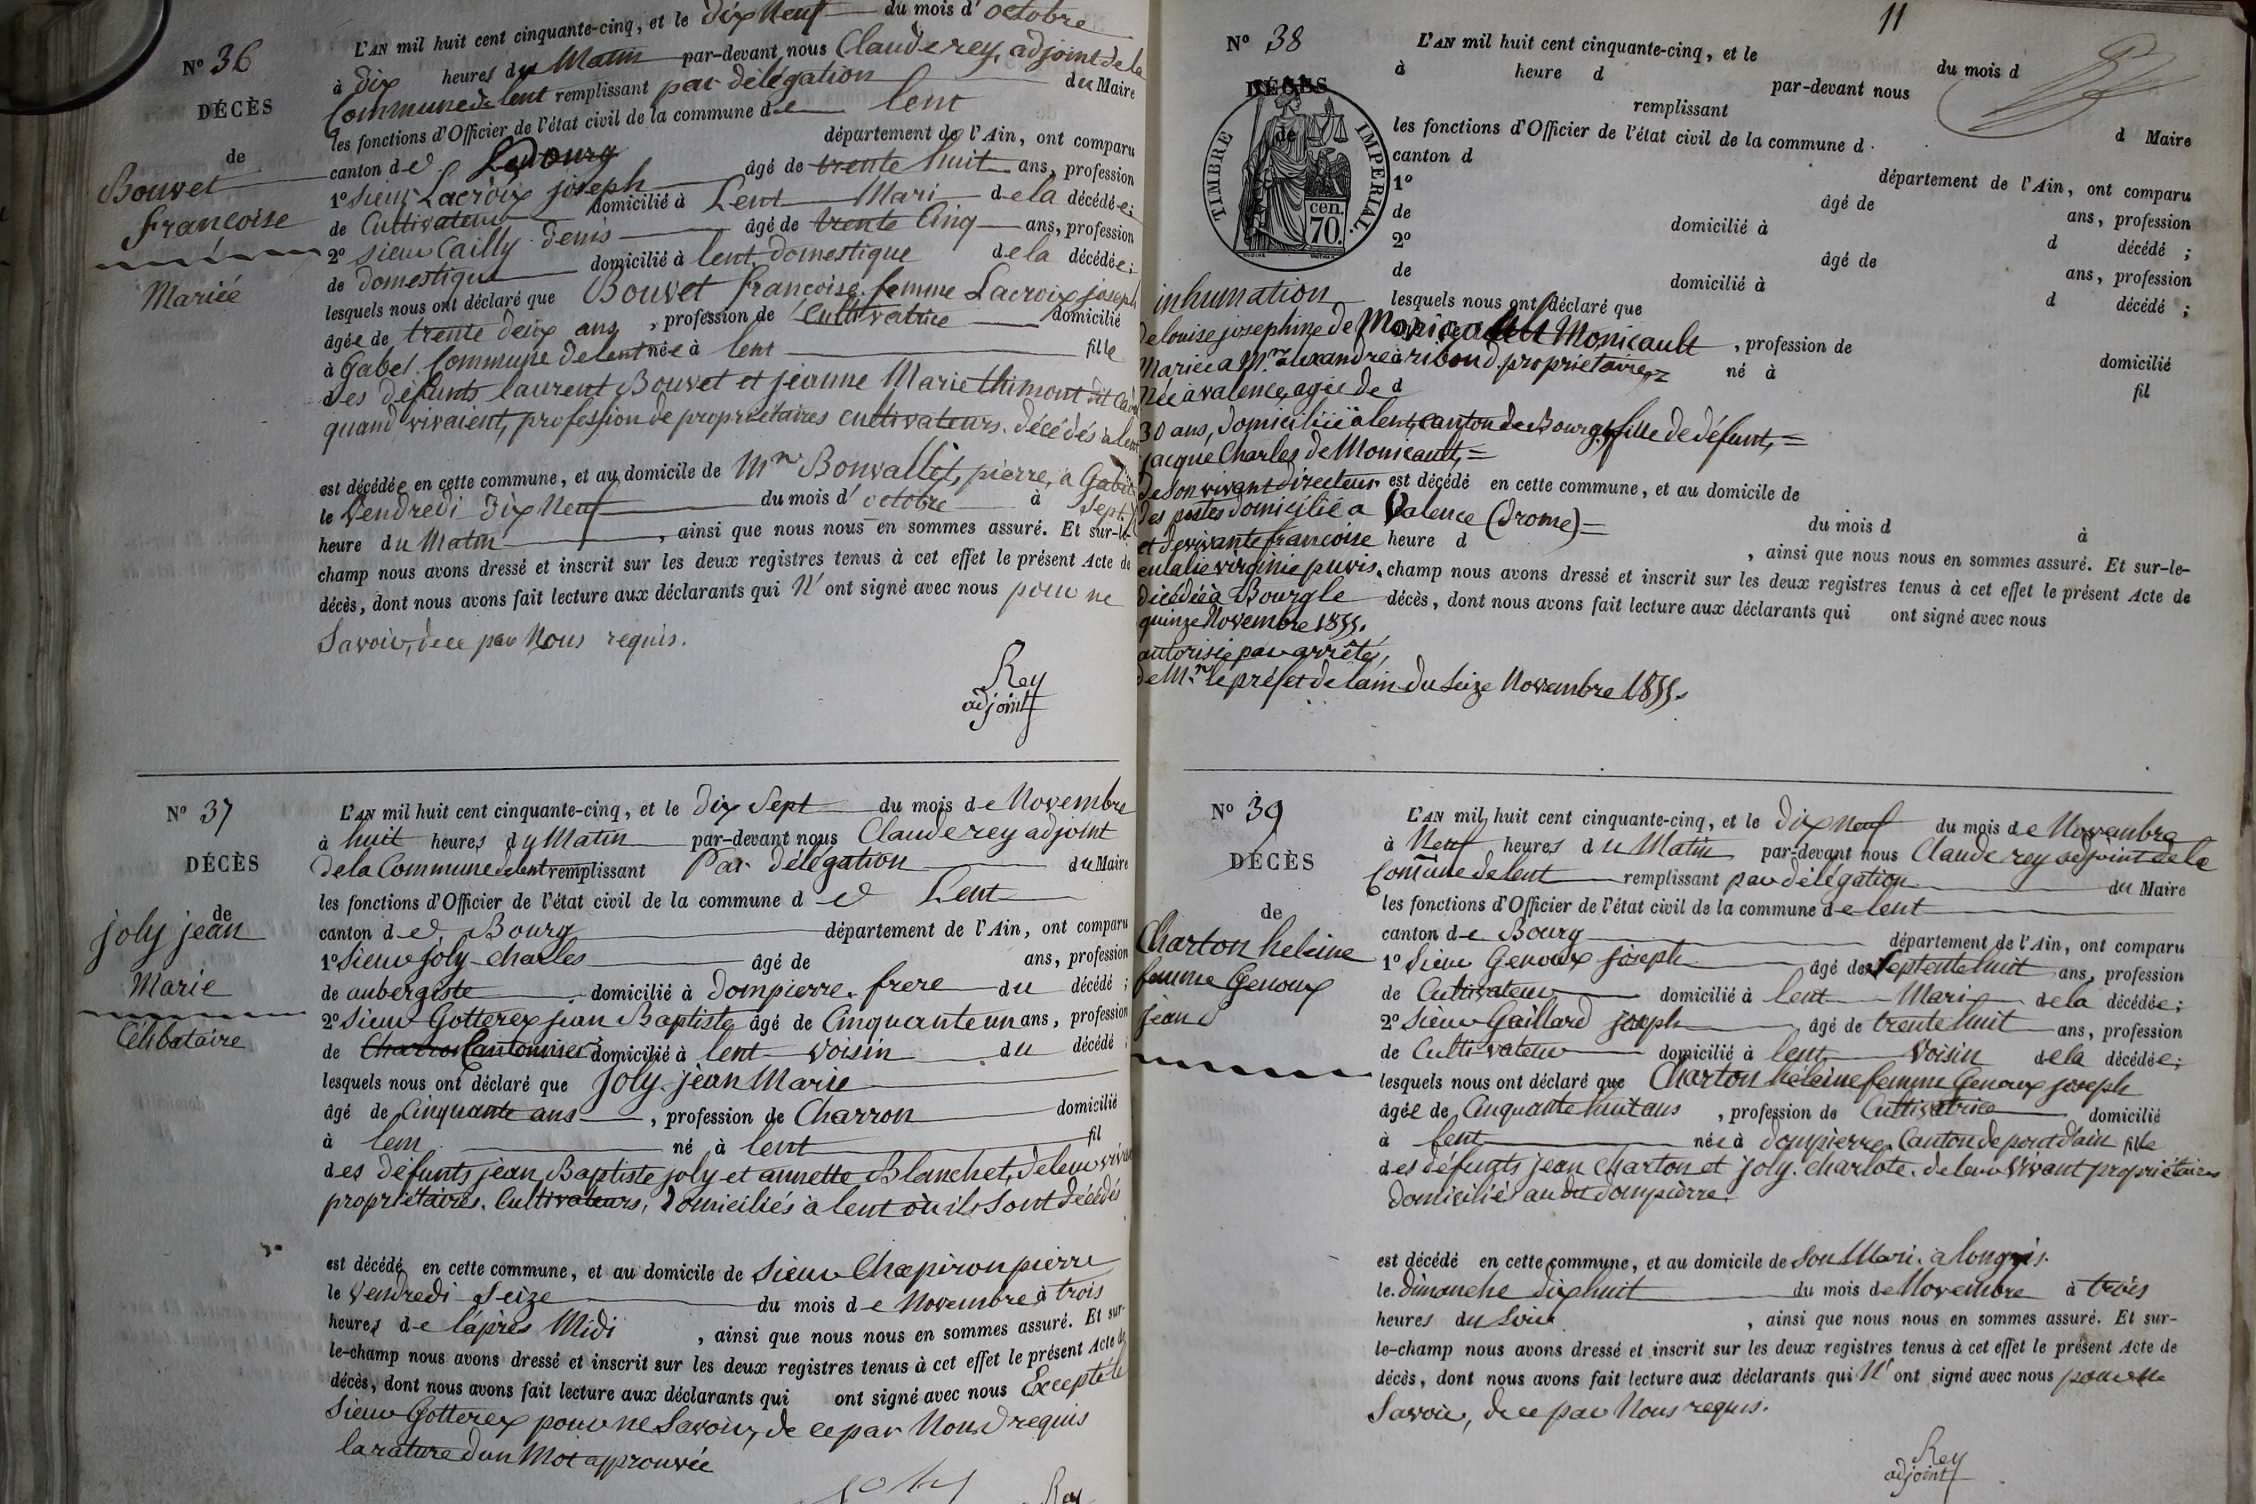 N° 36
DÉCÈS
de
Bouvet
françoise
Mariée
L'AN mil huit cent cinquante-cinq, et le dix Neuf du mois d' octobre
à dix heures du Matin par-devant nous Claude rey, adjoint de la
Commune de lent remplissant par délégation du Maire
les fonctions d'Officier de l'état civil de la commune de lent
canton de Bourg département de l'Ain, ont comparu
1° sieur Lacroix joseph âgé de trente huit ans, profession
de Cultivateur domicilié à Lent Mari de la décédée;
2° sieur Cailly denis âgé de trente Cinq ans, profession
de domestique domicilié à lent, domestique de la décédée;
lesquels nous ont déclaré que Bouvet françoise femme Lacroix joseph
âgée de trente deux ans, profession de Cultivatrice domicilié
à Gabet Commune de lent née à lent fille
des défunts laurent Bouvet et jeanne Marie thimont dit
quand vivaient, profession de propriétaires cultivateurs. décédés à lent
est décédée en cette commune, et au domicile de Mr Bonvallet, pierre, a Gabet
le Vendredi dix Neuf du mois d' octobre à sept
heure du Matin, ainsi que nous nous en sommes assuré. Et sur-le-
champ nous avons dressé et inscrit sur les deux registres tenus à cet effet le présent Acte de
décès, dont nous avons fait lecture aux déclarants qui N' ont signé avec nous pour ne
Savoir, de ce par Nous requis.
Rey
adjoint
N° 37
DÉCÈS
de
joly jean
Marie
Célibataire
L'AN mil huit cent cinquante-cinq, et le dix Sept du mois de Novembre
à huit heures du Matin par-devant nous Claude rey adjoint
de la Commune de lent remplissant Par délégation du Maire
les fonctions d'Officier de l'état civil de la commune de Lent
canton de Bourg département de l'Ain, ont comparu
1° Sieur joly charles âgé de ans, profession
de aubergiste domicilié à dompierre. frere du décédé;
2° Sieur Gotterex jean Baptiste âgé de Cinquante un ans, profession
de Charron Cantonnier domicilié à lent voisin du décédé;
lesquels nous ont déclaré que joly jean Marie
âgé de Cinquante ans, profession de Charron domicilié
à lent né à lent fil
des défunts jean Baptiste joly et annette Blanchet, de leur vivant
propriétaires. Cultivateurs, domiciliés à lent où ils sont décédés
est décédé en cette commune, et au domicile de Sieur Chapiron pierre
le Vendredi Seize du mois de Novembre à trois
heures de l'après Midi, ainsi que nous nous en sommes assuré. Et sur-
le-champ nous avons dressé et inscrit sur les deux registres tenus à cet effet le présent Acte de
décès, dont nous avons fait lecture aux déclarants qui ont signé avec nous Excepté le
Sieur Gotterex pour ne Savoir, de ce par Nous requis
la rature d'un Mot approuvée
Joly
Rey
11
N° 38
DÉCÈS
de
TIMBRE IMPÉRIAL
70 cen.
L'AN mil huit cent cinquante-cinq, et le du mois d
à heure d par-devant nous
remplissant d Maire
les fonctions d'Officier de l'état civil de la commune d
canton d département de l'Ain, ont comparu
1° âgé de ans, profession
de domicilié à d décédé;
2° âgé de ans, profession
de domicilié à d décédé;
inhumation lesquels nous ont déclaré que
de louise josephine de Monicault Monicault, profession de
Mariée a Mr alexandre à riboud. propriétaire né à domicilié
Née à valence, agée de d fil
30 ans, domiciliée à lent, canton de Bourg, fille de défunt,
jacque Charles de Monicault,
de son vivant directeur est décédé en cette commune, et au domicile de
des postes domicilié a Valence (drome) du mois d à
et de vivante francoise heure d, ainsi que nous nous en sommes assuré. Et sur-le-
eulalie virginie puvis. champ nous avons dressé et inscrit sur les deux registres tenus à cet effet le présent Acte de
décédée à Bourg le décès, dont nous avons fait lecture aux déclarants qui ont signé avec nous
quinze Novembre 1855.
autorisée par arrêté,
de Mr le préfet de lain du Seize Novembre 1855.
N° 39
DÉCÈS
de
Charton heleine
femme Genoux
jean
L'AN mil huit cent cinquante-cinq, et le dix neuf du mois de Novembre
à Neuf heures du Matin par-devant nous Claude rey adjoint de la
Comune de lent remplissant par délégation du Maire
les fonctions d'Officier de l'état civil de la commune de lent
canton de Bourg département de l'Ain, ont comparu
1° Sieur Genoux joseph âgé de Septente huit ans, profession
de Cultivateur domicilié à lent Mari de la décédée;
2° Sieur Gaillard joseph âgé de trente huit ans, profession
de Cultivateur domicilié à lent Voisin de la décédée;
lesquels nous ont déclaré que Charton héleine femme Genoux joseph
âgée de Cinquante huit ans, profession de Cultivatrice domicilié
à lent née à dompierre, Canton de pont d'ain fille
des défunts jean Charton et joly. charlote. de leur Vivant propriétaires
domicilié au dit dompierre.
est décédé en cette commune, et au domicile de son Mari. a longris.
le dimanche dix huit du mois de Novembre à trois
heures du Soir, ainsi que nous nous en sommes assuré. Et sur-
le-champ nous avons dressé et inscrit sur les deux registres tenus à cet effet le présent Acte de
décès, dont nous avons fait lecture aux déclarants qui N' ont signé avec nous pour ne
Savoir, de ce par Nous requis.
Rey
adjoint